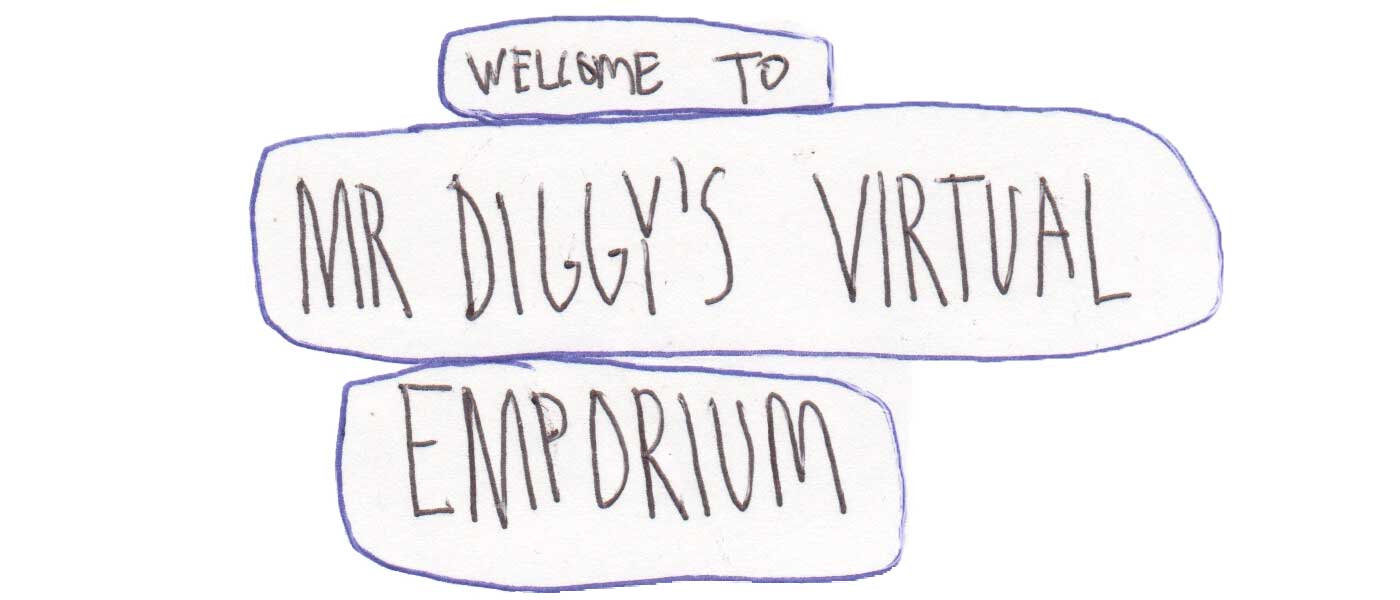 WELCOME TO
MR DIGGY'S VIRTUAL
EMPORIUM